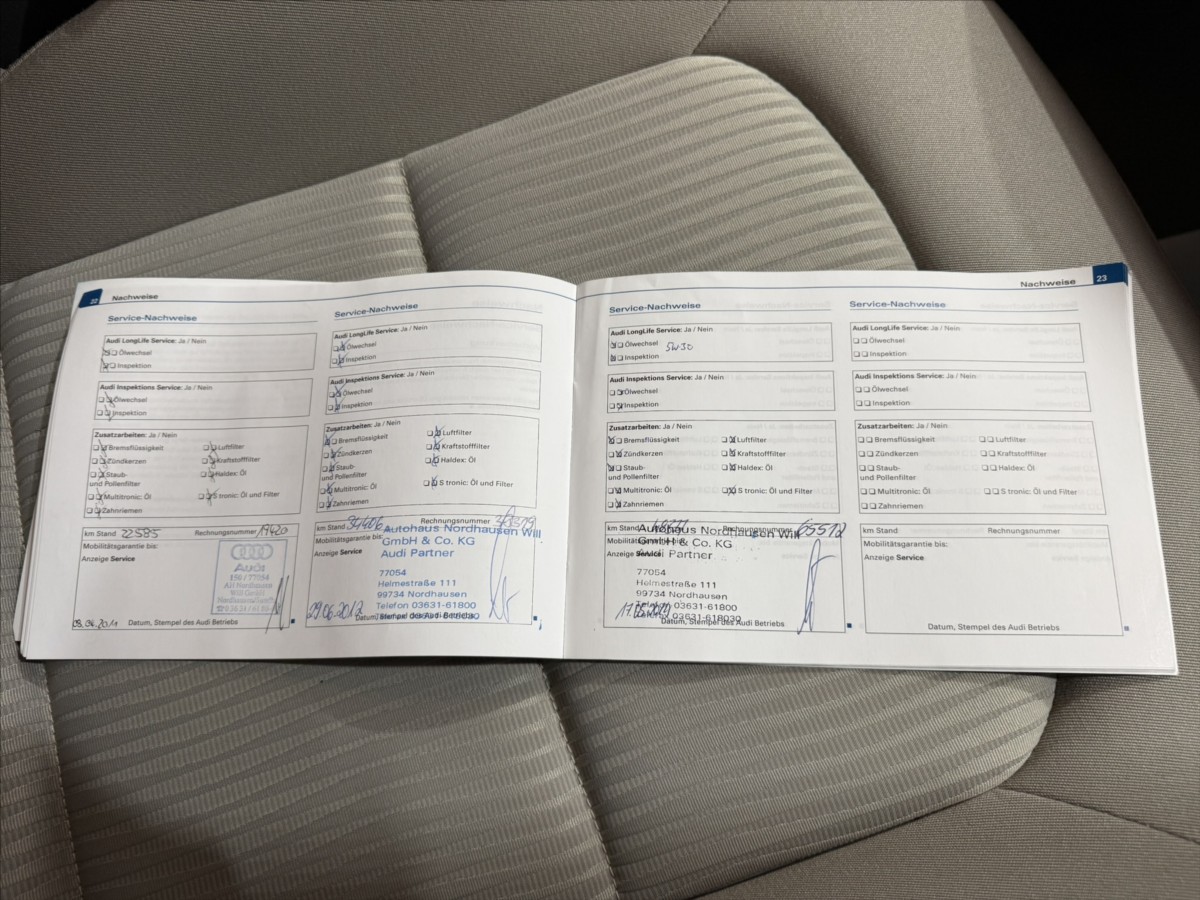 22
Nachweise
Service-Nachweise
Audi LongLife Service: Ja / Nein
Ölwechsel
Inspektion
Audi Inspektions Service: Ja / Nein
Ölwechsel
Inspektion
Zusatzarbeiten: Ja / Nein
Bremsflüssigkeit
Luftfilter
Zündkerzen
Kraftstofffilter
Staub- und Pollenfilter
Haldex: Öl
Multitronic: Öl
S tronic: Öl und Filter
Zahnriemen
km Stand 22585
Rechnungsnummer
Mobilitätsgarantie bis:
Anzeige Service
Audi
77054
AH Nordhausen
Will GmbH
Datum, Stempel des Audi Betriebs
Service-Nachweise
Audi LongLife Service: Ja / Nein
Ölwechsel
Inspektion
Audi Inspektions Service: Ja / Nein
Ölwechsel
Inspektion
Zusatzarbeiten: Ja / Nein
Bremsflüssigkeit
Luftfilter
Zündkerzen
Kraftstofffilter
Staub- und Pollenfilter
Haldex: Öl
Multitronic: Öl
S tronic: Öl und Filter
Zahnriemen
km Stand
Rechnungsnummer
Mobilitätsgarantie bis:
Anzeige Service
Autohaus Nordhausen Will
GmbH & Co. KG
Audi Partner
77054
Helmestraße 111
99734 Nordhausen
Telefon 03631-61800
29.06.2012
Datum, Stempel des Audi Betriebs
Nachweise
23
Service-Nachweise
Audi LongLife Service: Ja / Nein
Ölwechsel
5W30
Inspektion
Audi Inspektions Service: Ja / Nein
Ölwechsel
Inspektion
Zusatzarbeiten: Ja / Nein
Bremsflüssigkeit
Luftfilter
Zündkerzen
Kraftstofffilter
Staub- und Pollenfilter
Haldex: Öl
Multitronic: Öl
S tronic: Öl und Filter
Zahnriemen
km Stand
Rechnungsnummer
Mobilitätsgarantie bis:
Anzeige Service
Autohaus Nordhausen Will
GmbH & Co. KG
Audi Partner
77054
Helmestraße 111
99734 Nordhausen
Telefon 03631-61800
Telefax 03631-618030
Datum, Stempel des Audi Betriebs
Service-Nachweise
Audi LongLife Service: Ja / Nein
Ölwechsel
Inspektion
Audi Inspektions Service: Ja / Nein
Ölwechsel
Inspektion
Zusatzarbeiten: Ja / Nein
Bremsflüssigkeit
Luftfilter
Zündkerzen
Kraftstofffilter
Staub- und Pollenfilter
Haldex: Öl
Multitronic: Öl
S tronic: Öl und Filter
Zahnriemen
km Stand
Rechnungsnummer
Mobilitätsgarantie bis:
Anzeige Service
Datum, Stempel des Audi Betriebs